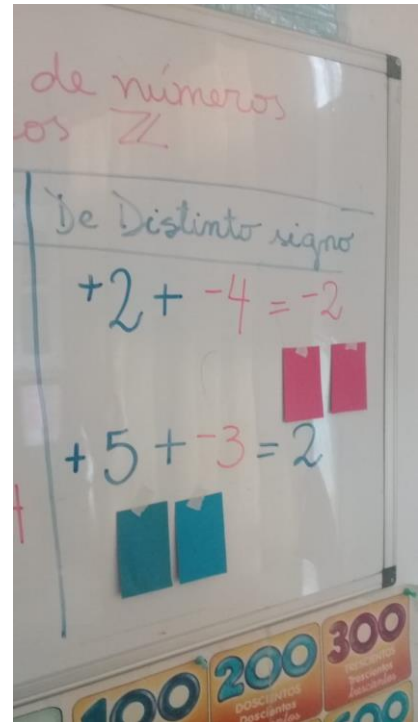 de números
os ℤ
De Distinto signo
+2 + -4 = -2
+5 + -3 = 2
100
200
DOSCIENTOS
Doscientos
300
TRESCIENTOS
Trescientos
trescientos